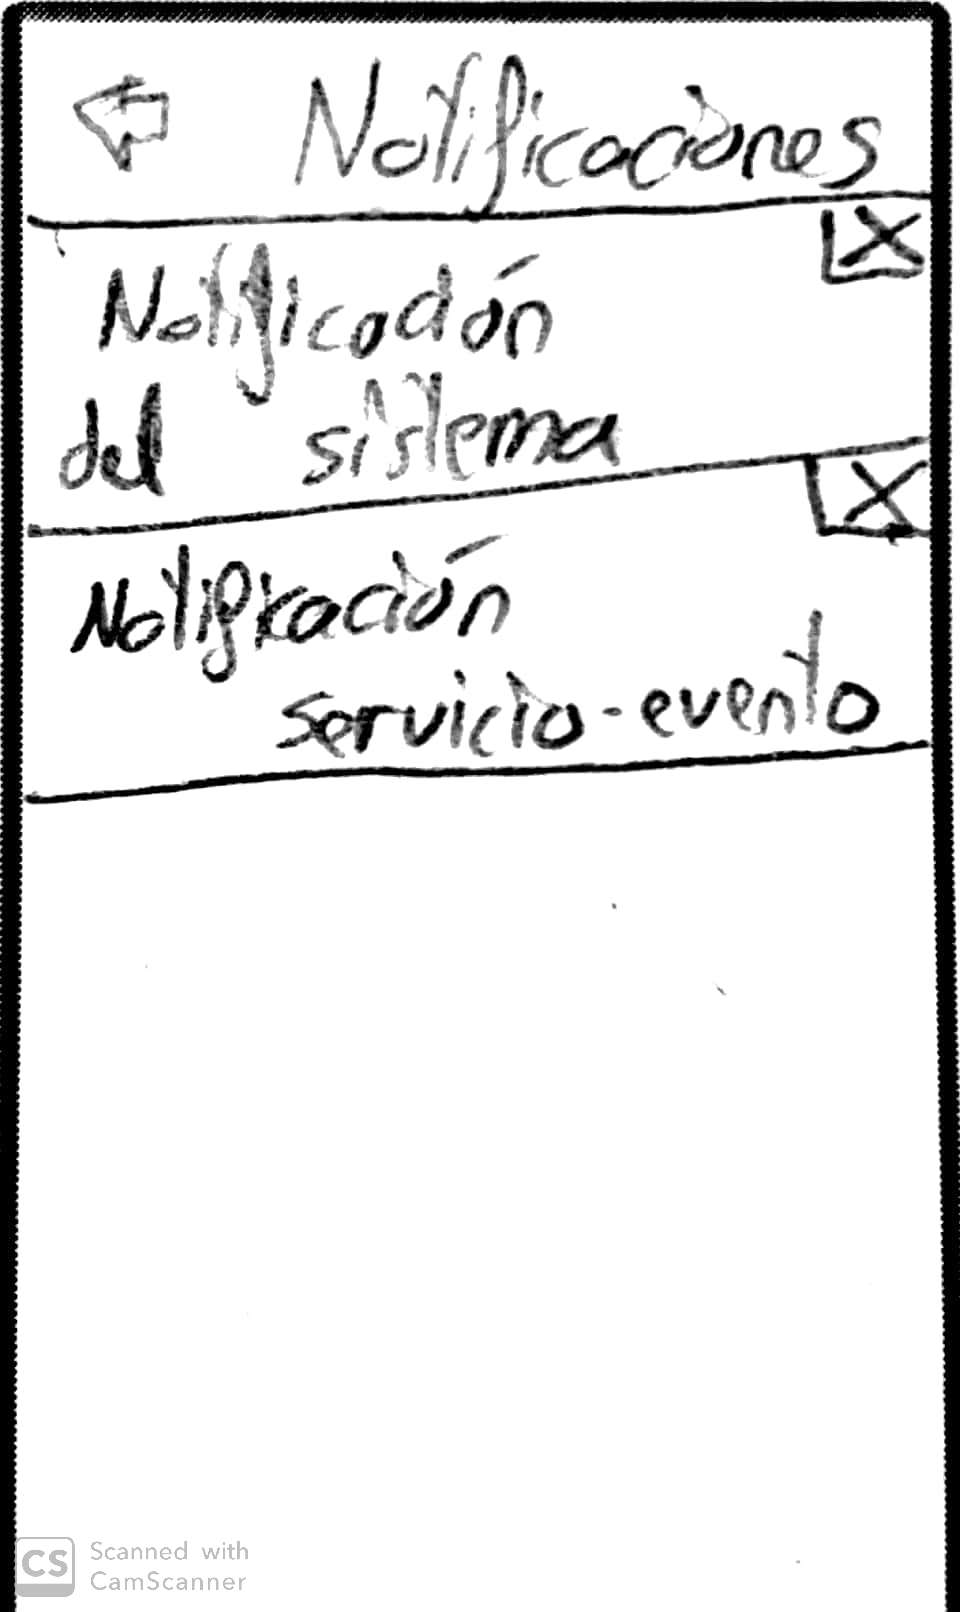 Notificaciones
Notificación
del sistema
Notificación
servicio-evento
CS Scanned with
CamScanner